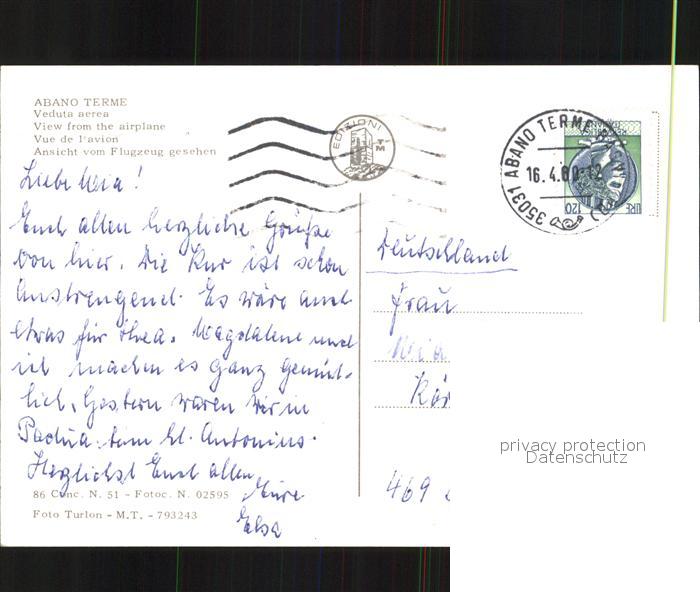 ABANO TERME
Veduta aerea
View from the airplane
Vue de l'avion
Ansicht vom Flugzeug gesehen
EDIZIONI
MT
35031 ABANO TERME
16.4.80-12
LIRE 120
Liebe Mia!
Euch allen herzliche Grüße
von hier. Die Kur ist schon
Anstrengend. Es wäre auch
etwas für Thea. Magdalene und
ich machen es ganz gemüt-
lich. Gestern waren wir in
Padua beim hl. Antonius.
Herzlichst Euch allen
Eure
Elsa
Deutschland
Frau
Mia
Kör
469
86 Conc. N. 51 - Fotoc. N. 02595
Foto Turlon - M.T. - 793243
privacy protection
Datenschutz